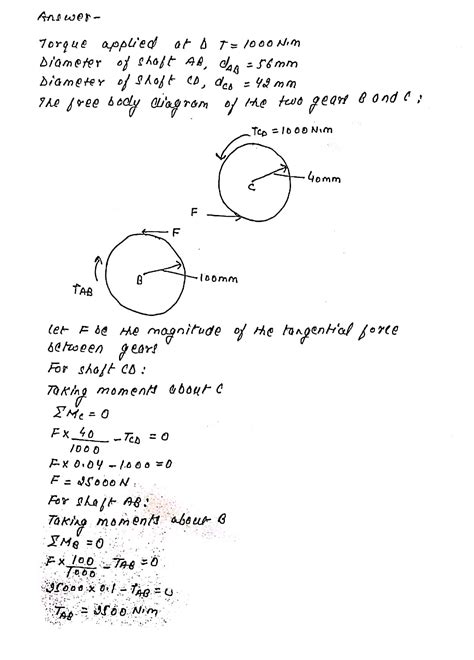 Answer-
Torque applied at D T = 1000 N.m
Diameter of shaft AB, dAB = 56mm
Diameter of shaft CD, dCD = 42 mm
The free body diagram of the two gears B and C :
TCD = 1000 N.m
C
40mm
F
F
B
100mm
TAB
let F be the magnitude of the tangential force
between gears
For shaft CD :
Taking moments about C
ΣMC = 0
F x 40/1000 - TCD = 0
F x 0.04 - 1000 = 0
F = 25000 N
For shaft AB:
Taking moments about B
ΣMB = 0
F x 100/1000 - TAB = 0
25000 x 0.1 - TAB = 0
TAB = 2500 N.m